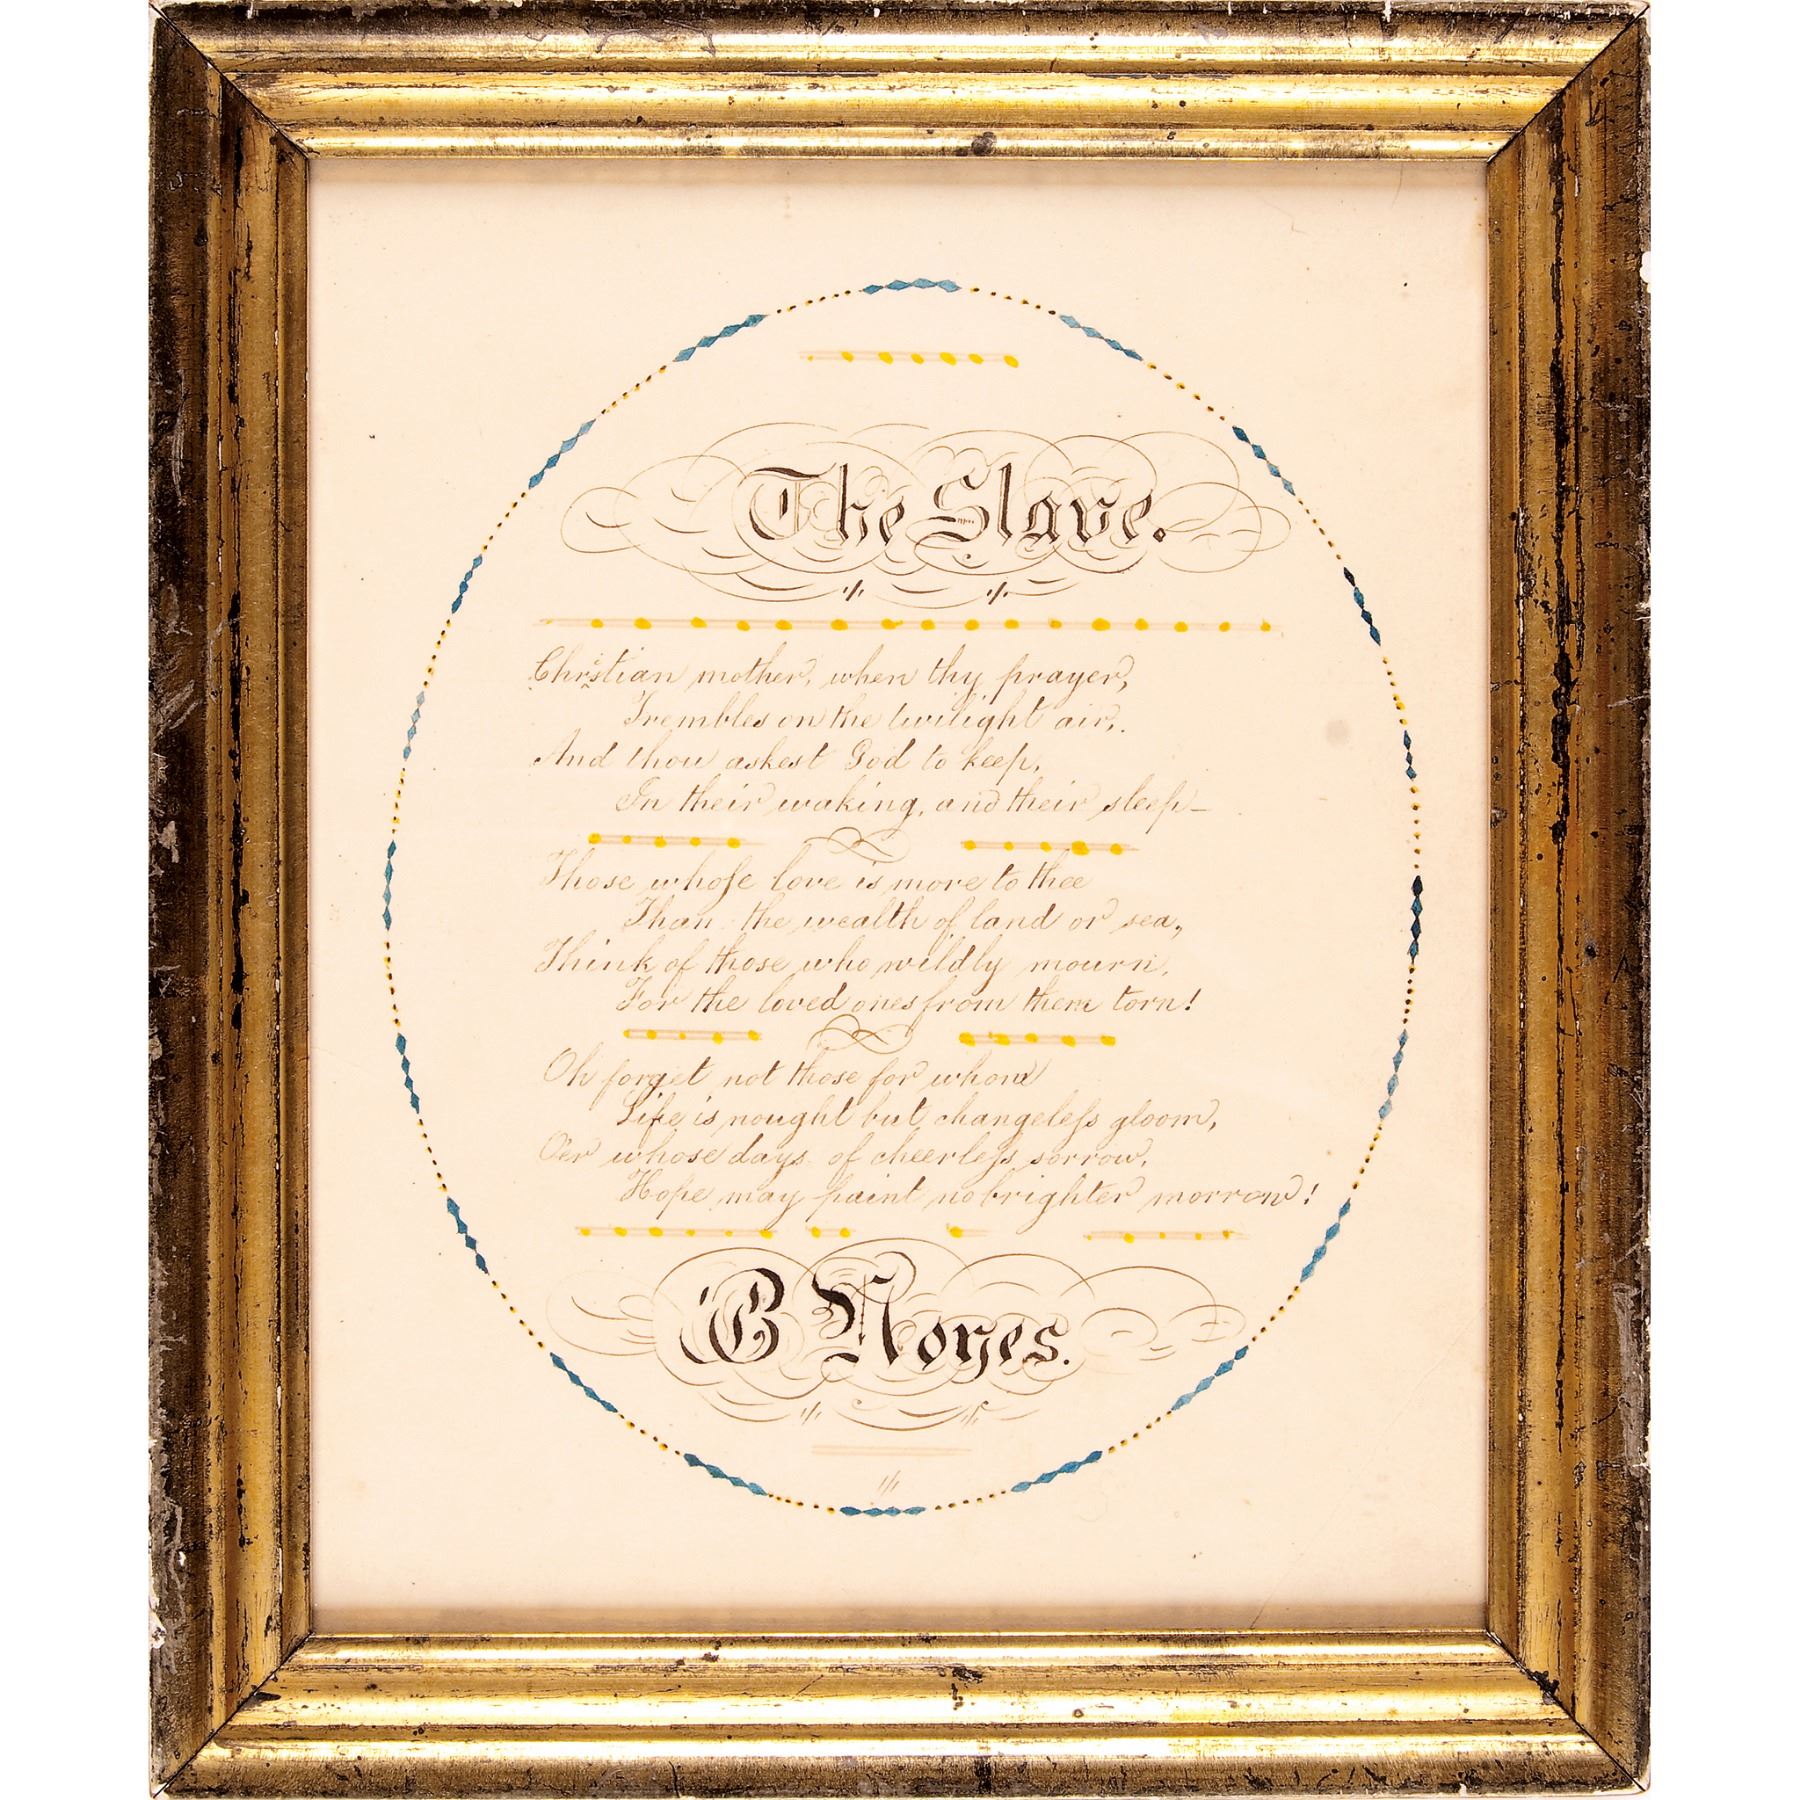 The Slave.
Christian mother, when thy prayer,
Trembles on the twilight air,.
And thou askest God to keep,
In their waking, and their sleep—
Those whoſe love is more to thee
Than the wealth of land or sea,
Think of those who wildly mourn,
For the loved ones from them torn!
Oh forget not those for whom
Life is nought but changeleſs gloom,
O'er whose days of cheerleſs sorrow,
Hope may paint no brighter morrow!
B Noyes.